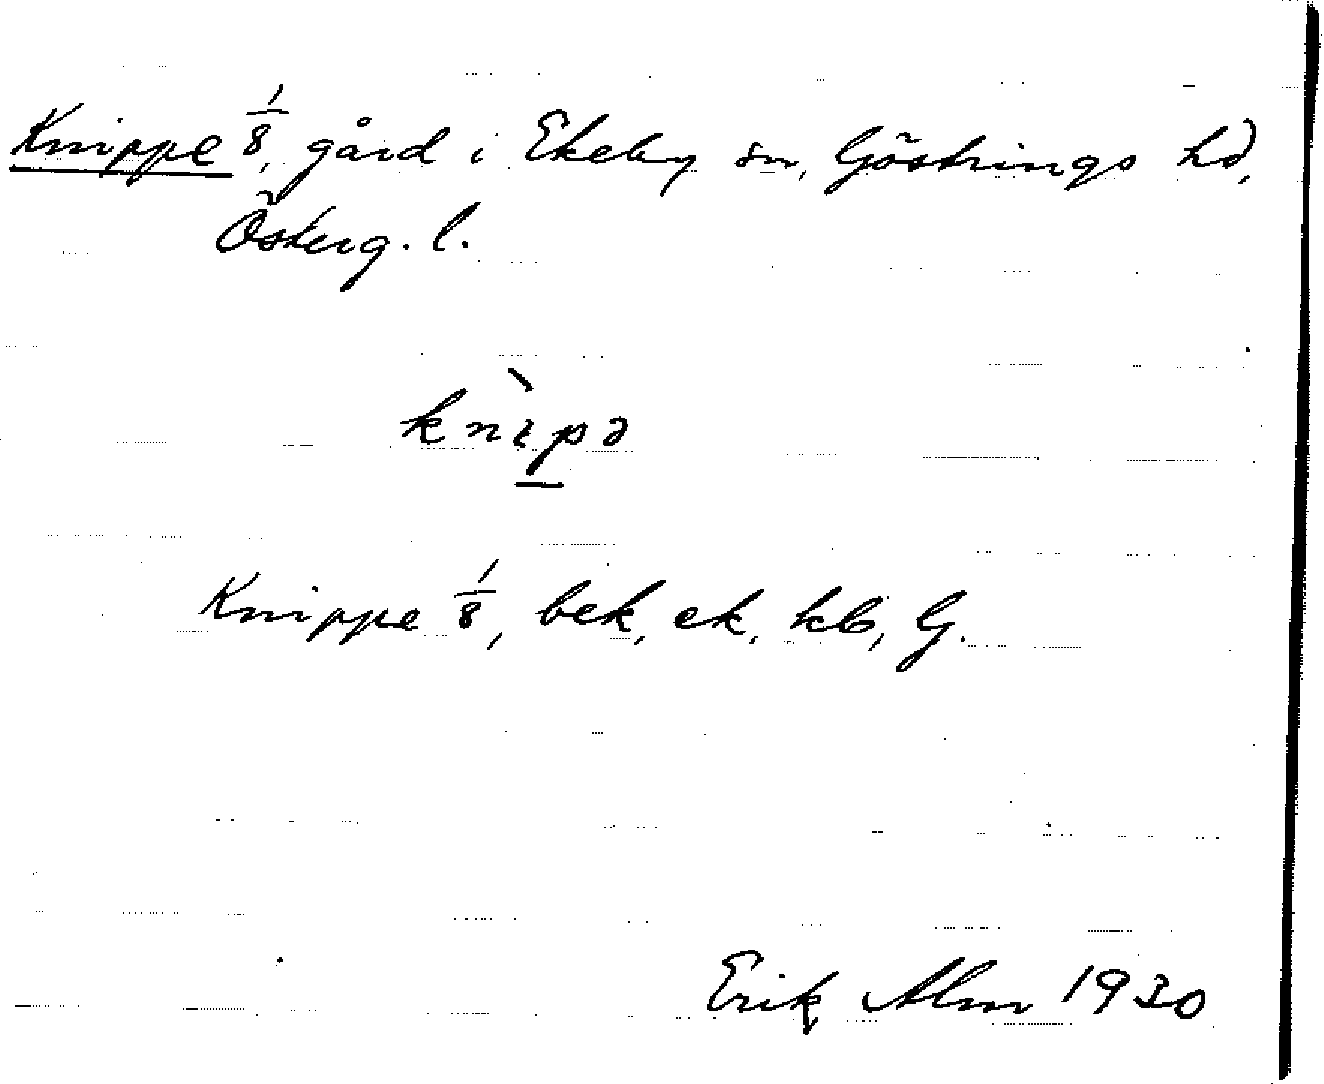 Knippe 1/8, gård i Ekeby sn, Göstrings hd,
Österg. l.
knìpə
Knippe 1/8, bek, ek, kb, G.
Erik Alm 1930